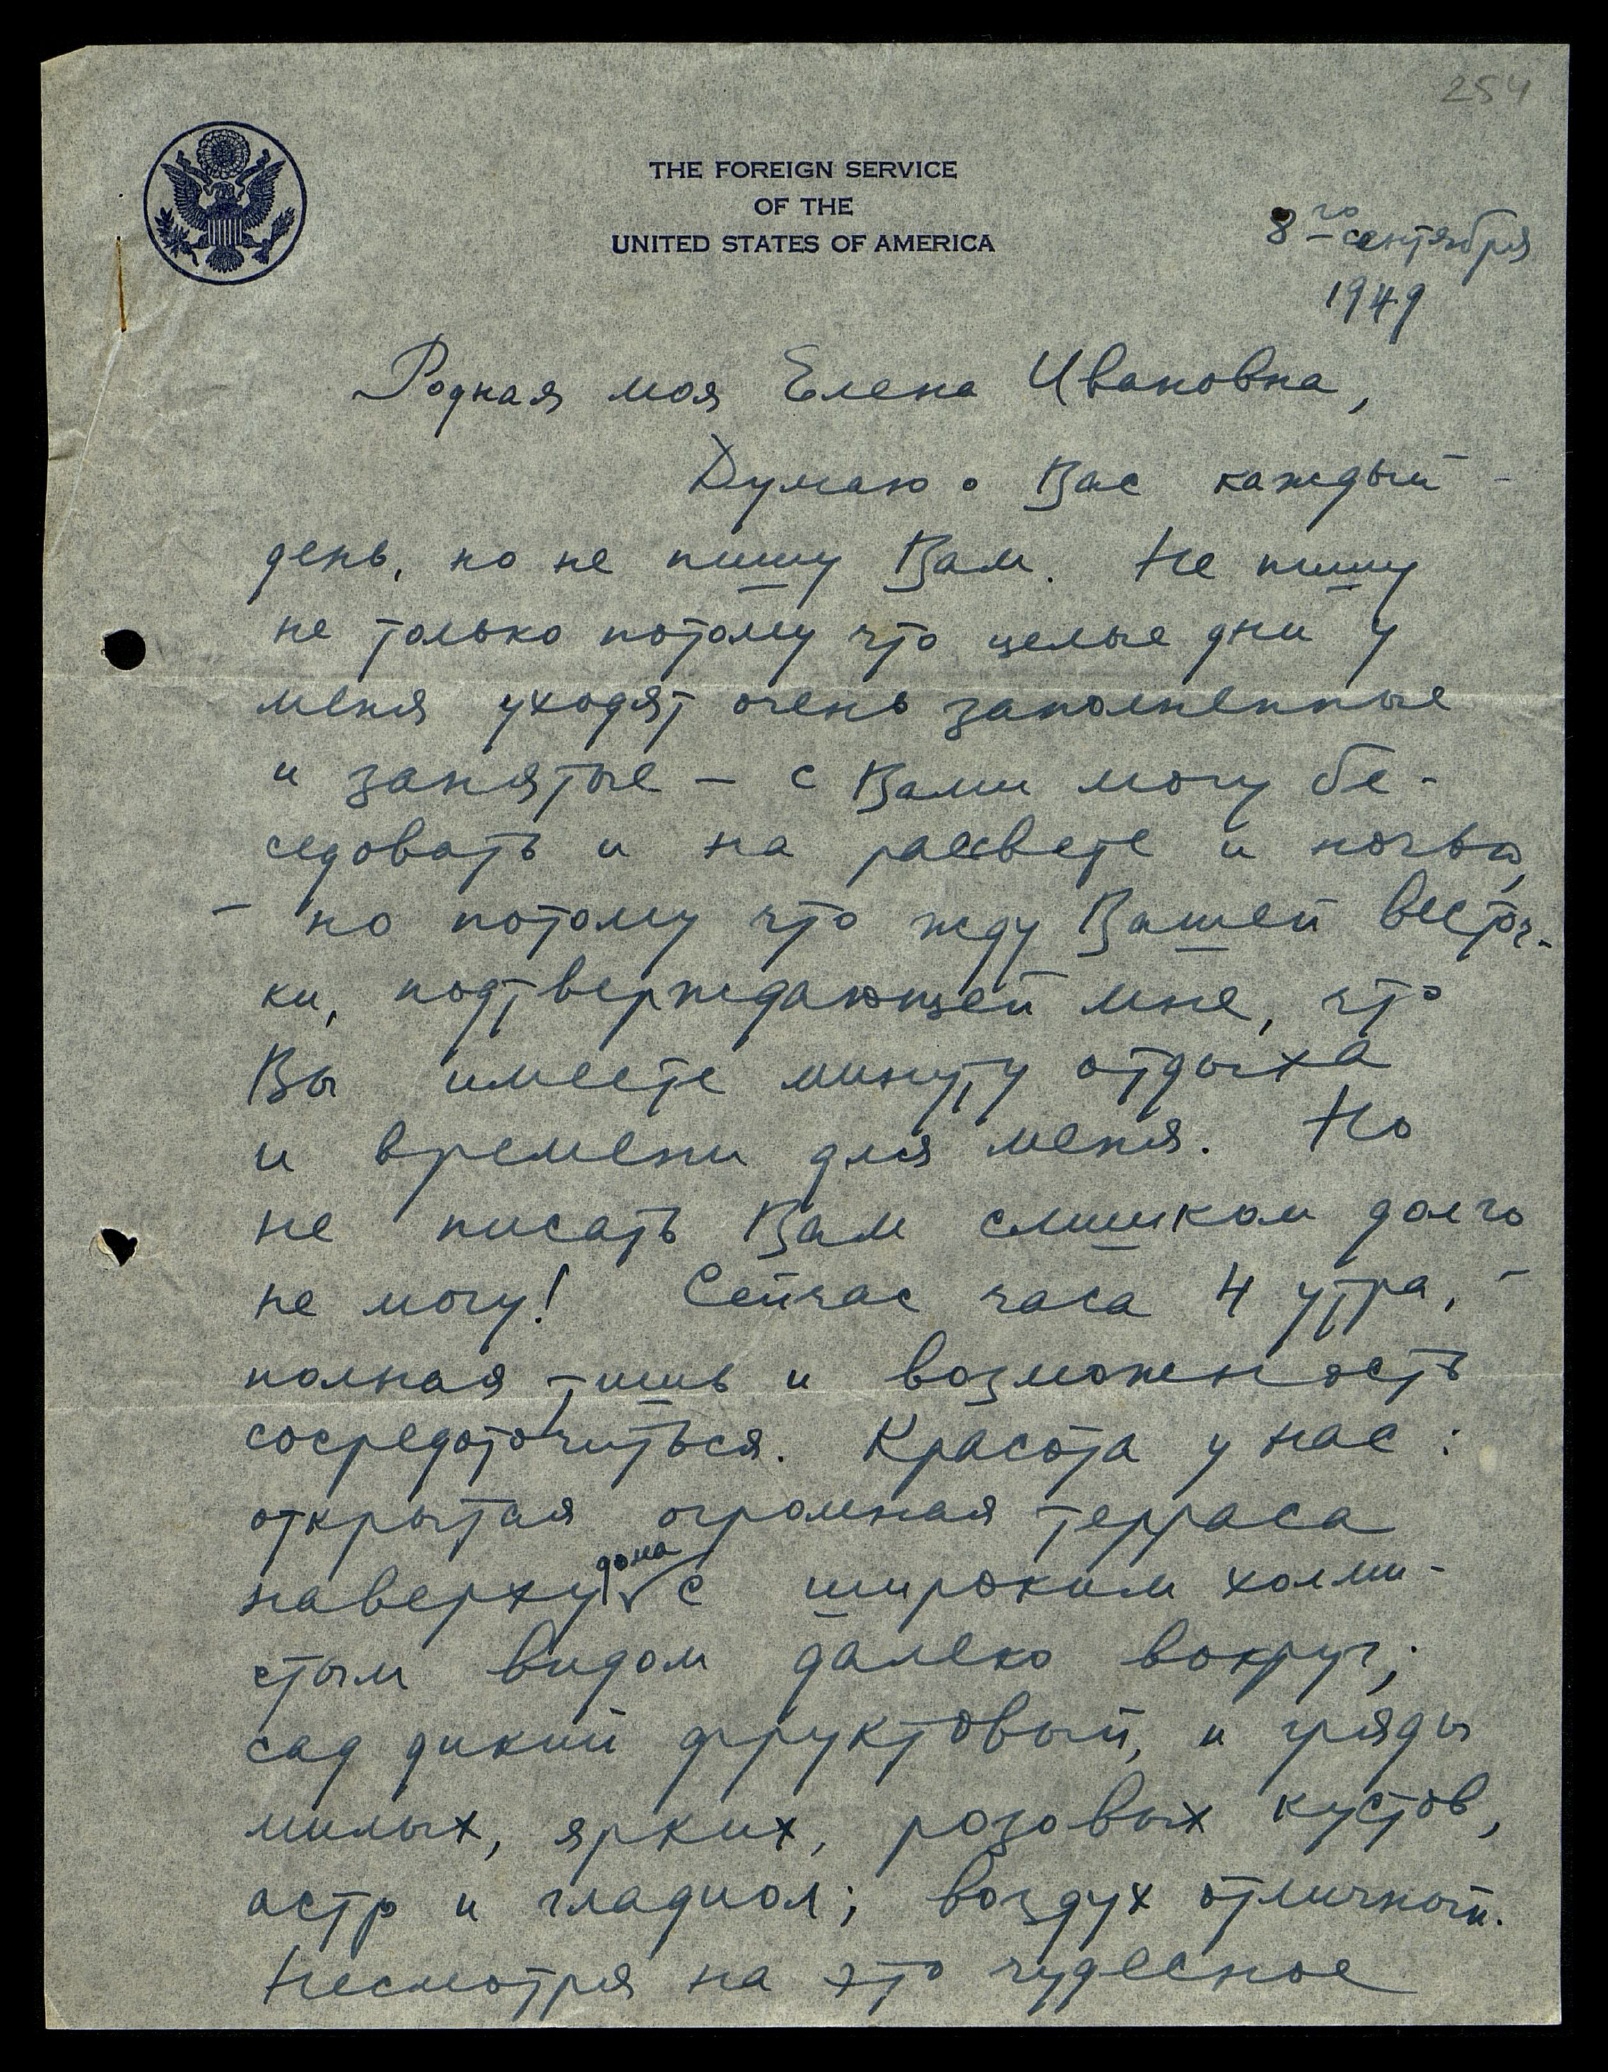 254
THE FOREIGN SERVICE
OF THE
UNITED STATES OF AMERICA
8го сентября
1949
Родная моя Елена Ивановна,
Думаю о Вас каждый
день, но не пишу Вам. Не пишу
не только потому что целые дни у
меня уходят очень заполненные
и занятые – с Вами могу бе-
седовать и на рассвете и ночью,
– но потому что жду Вашей весточ-
ки, подтверждающей мне, что
Вы имеете минуту отдыха
и времени для меня. Но
не писать Вам слишком долго
не могу! Сейчас часа 4 утра, –
полная тишь и возможность
сосредоточиться. Красота у нас:
открытая огромная терраса
наверху дома с широким холми-
стым видом далеко вокруг;
сад дикий фруктовый, и гряды
милых, ярких, розовых кустов,
астр и гладиол; воздух отличный.
Несмотря на это чудесное